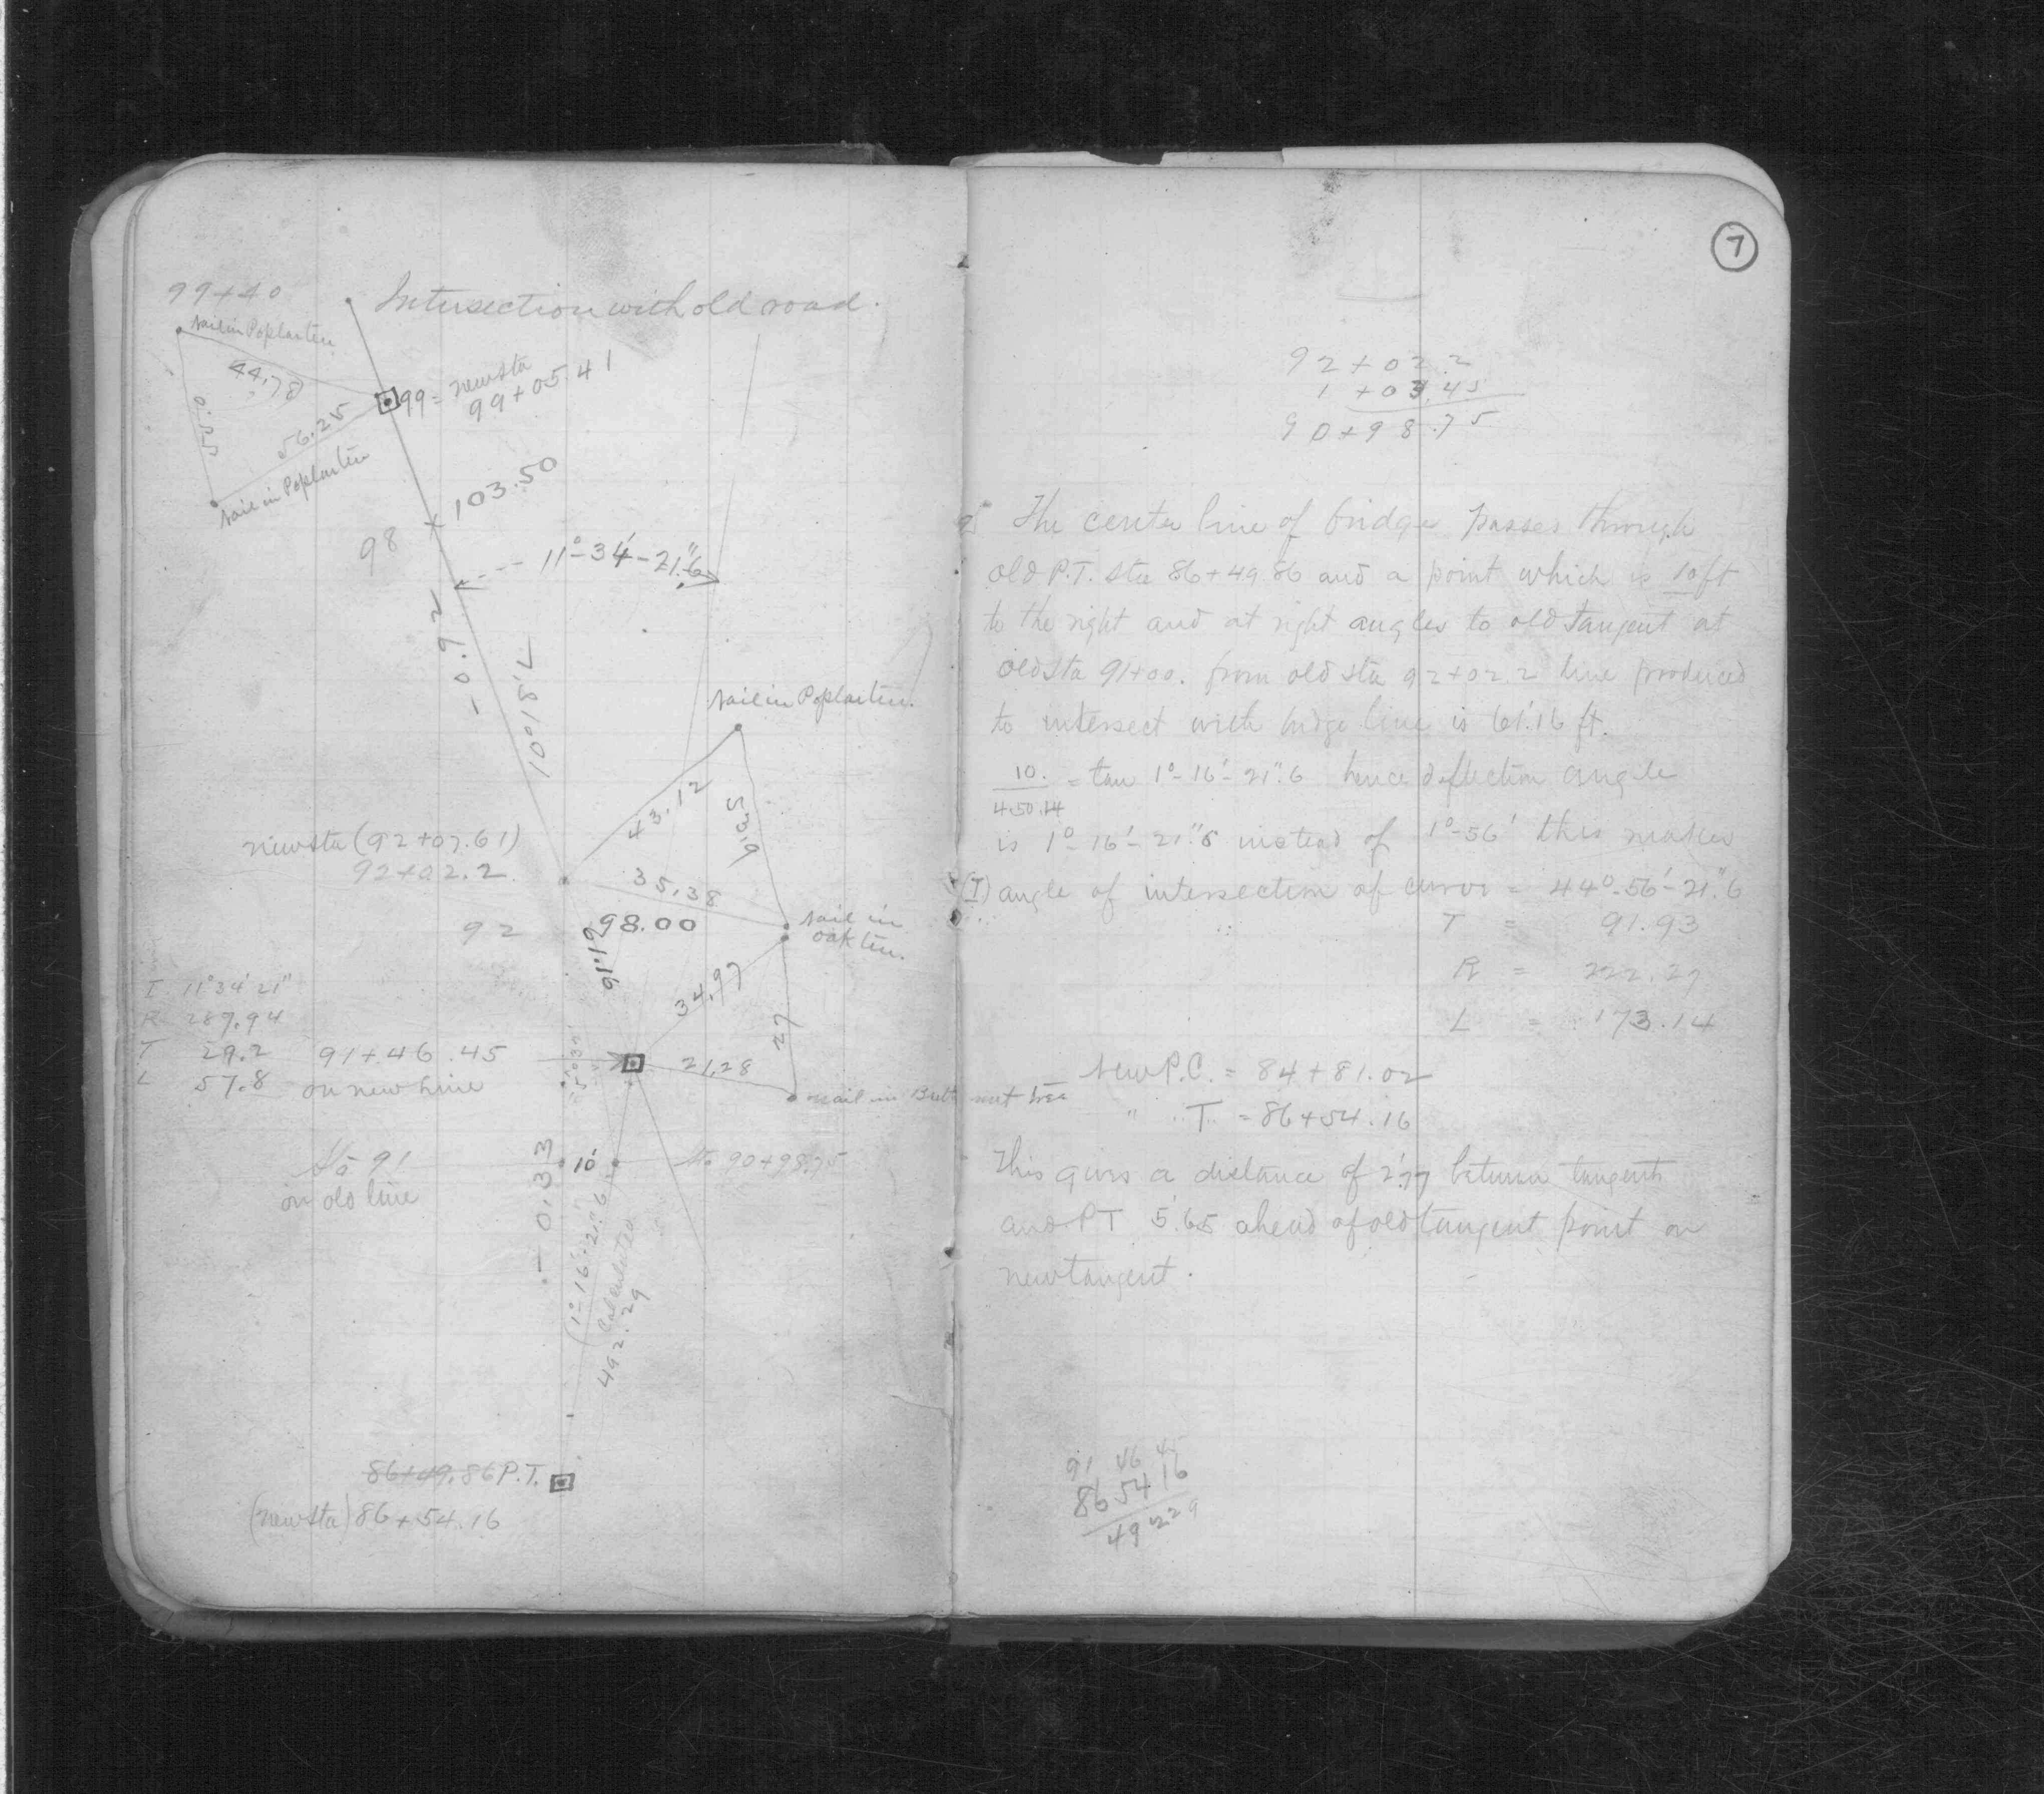 99+40
Intersection with old road.
nail in Poplar tree
44.78
99 = new sta
99+05.41
56.25
nail in Poplar tree
103.50
98
11°-34'-21".6
-0.92
10°18'L
nail in Poplar tree.
43.12
new sta (92+07.61)
92+02.2
35.38
98.00
92
nail in
oak tree.
61.16
34.97
27
I 11°34'21"
R 289.94
T 29.2
L 57.8
91+46.45
on new line
21.28
nail in Butternut tree
Sta 91
on old line
10'
Sta 90+98.75
-0.33
(1°-16'-21".6
Calculated
492.29
86+49.86 P.T.
(new sta) 86+54.16
7
92+02.2
1+03.45
90+98.75
The center line of bridge passes through
old P.T. sta 86+49.86 and a point which is 10 ft
to the right and at right angles to old tangent at
old sta 91+00. from old sta 92+02.2 line produced
to intersect with bridge line is 61.16 ft.
10. = tan 1°-16'-21".6 hence deflection angle
4.50.14
is 1°-16'-21".6 instead of 1°-56' this makes
(I) angle of intersection of curve = 44°-56'-21".6
T = 91.93
R = 222.27
L = 173.14
New P.C. = 84+81.02
" T. = 86+54.16
This gives a distance of 2'.77 between tangents
and PT 5'.65 ahead of old tangent point on
new tangent.
91 46 45
86 54 16
492 29